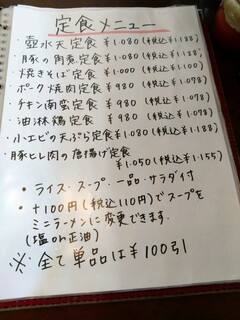 定食メニュー
・壺水天定食 ¥1.080(税込¥1.188)
・豚の角煮定食 ¥1.080(税込¥1.188)
・焼きそば定食 ¥1.000(税込¥1.100)
・ポーク焼肉定食 ¥980(税込¥1.078)
・チキン南蛮定食 ¥980(税込¥1.078)
・油淋鶏定食 ¥980(税込¥1.078)
・小エビの天ぷら定食 ¥1.080(税込¥1.188)
・豚ヒレ肉の唐揚げ定食
¥1.050(税込¥1.155)
・ライス・スープ・一品・サラダ付
・+100円(税込110円)でスープを
ミニラーメンに変更できます。
(塩or正油)
※全て単品は¥100引